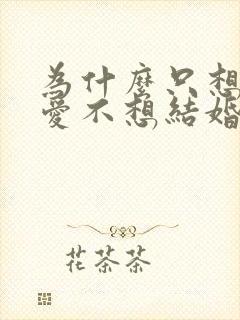 為什麼只想
愛不想結婚
花茶茶